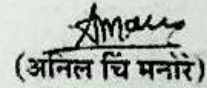 (अनिल चिं मनोरे)